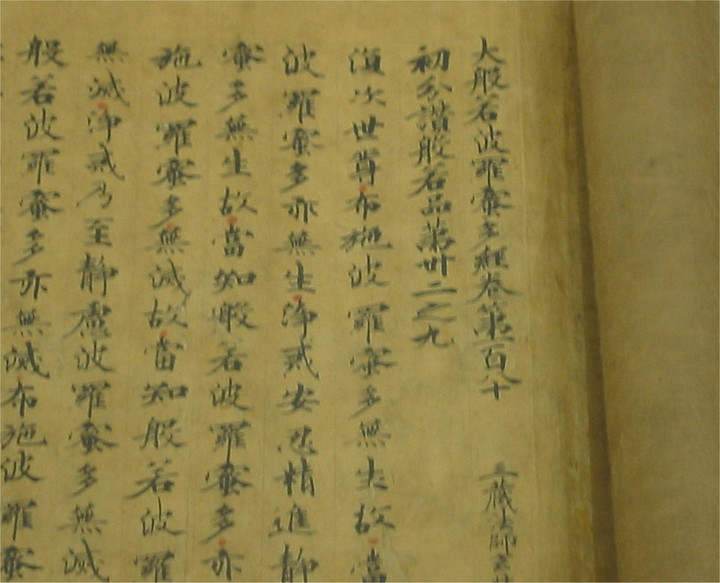 大般若波羅蜜多經卷第一百八十 三藏法師玄
初分讚般若品第卅二之九
復次世尊布施波羅蜜多無生故當
波羅蜜多亦無生淨戒安忍精進靜
蜜多無生故當知般若波羅蜜多亦
施波羅蜜多無滅故當知般若波羅
無滅淨戒乃至靜慮波羅蜜多無滅
般若波羅蜜多亦無滅布施波羅蜜